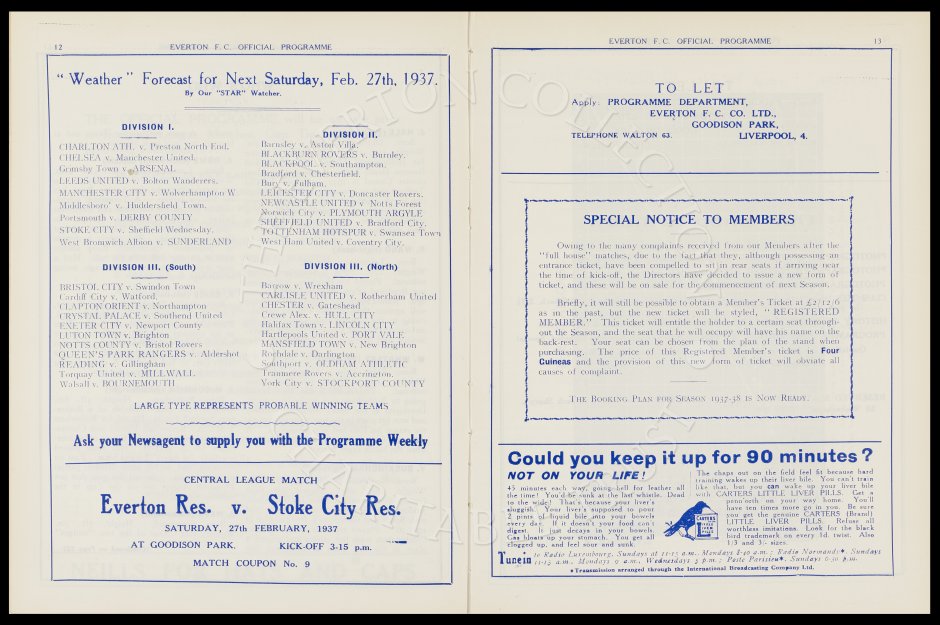 12 EVERTON F. C. OFFICIAL PROGRAMME
“Weather” Forecast for Next Saturday, Feb. 27th, 1937.
By Our “STAR” Watcher.
DIVISION I.
CHARLTON ATH. v. Preston North End.
CHELSEA v. Manchester United.
Grimsby Town v. ARSENAL
LEEDS UNITED v. Bolton Wanderers.
MANCHESTER CITY v. Wolverhampton W.
Middlesbro' v. Huddersfield Town.
Portsmouth v. DERBY COUNTY
STOKE CITY v. Sheffield Wednesday.
West Bromwich Albion v. SUNDERLAND
DIVISION II.
Barnsley v. Aston Villa.
BLACKBURN ROVERS v. Burnley.
BLACKPOOL v. Southampton.
Bradford v. Chesterfield.
Bury v. Fulham.
LEICESTER CITY v. Doncaster Rovers.
NEWCASTLE UNITED v Notts Forest
Norwich City v. PLYMOUTH ARGYLE
SHEFFIELD UNITED v. Bradford City.
TOTTENHAM HOTSPUR v. Swansea Town
West Ham United v. Coventry City.
DIVISION III. (South)
BRISTOL CITY v. Swindon Town
Cardiff City v. Watford.
CLAPTON ORIENT v. Northampton
CRYSTAL PALACE v. Southend United
EXETER CITY v. Newport County
LUTON TOWN v. Brighton
NOTTS COUNTY v. Bristol Rovers
QUEEN'S PARK RANGERS v. Aldershot
READING v. Gillingham
Torquay United v. MILLWALL
Walsall v. BOURNEMOUTH
DIVISION III. (North)
Barrow v. Wrexham
CARLISLE UNITED v. Rotherham United
CHESTER v. Gateshead
Crewe Alex. v. HULL CITY
Halifax Town v. LINCOLN CITY
Hartlepools United v. PORT VALE
MANSFIELD TOWN v. New Brighton
Rochdale v. Darlington
Southport v. OLDHAM ATHLETIC
Tranmere Rovers v. Accrington.
York City v. STOCKPORT COUNTY
LARGE TYPE REPRESENTS PROBABLE WINNING TEAMS
Ask your Newsagent to supply you with the Programme Weekly
CENTRAL LEAGUE MATCH
Everton Res. v. Stoke City Res.
SATURDAY, 27th FEBRUARY, 1937
AT GOODISON PARK. KICK-OFF 3-15 p.m.
MATCH COUPON No. 9
EVERTON F. C. OFFICIAL PROGRAMME 13
TO LET
Apply: PROGRAMME DEPARTMENT,
EVERTON F. C. CO. LTD.,
GOODISON PARK,
TELEPHONE WALTON 63. LIVERPOOL, 4.
SPECIAL NOTICE TO MEMBERS
Owing to the many complaints received from our Members after the
“full house” matches, due to the fact that they, although possessing an
entrance ticket, have been compelled to sit in rear seats if arriving near
the time of kick-off, the Directors have decided to issue a new form of
ticket, and these will be on sale for the commencement of next Season.
Briefly, it will still be possible to obtain a Member's Ticket at £2/12/6
as in the past, but the new ticket will be styled, “REGISTERED
MEMBER.” This ticket will entitle the holder to a certain seat through-
out the Season, and the seat that he will occupy will have his name on the
back-rest. Your seat can be chosen from the plan of the stand when
purchasing. The price of this Registered Member's ticket is Four
Guineas and the provision of this new form of ticket will obviate all
causes of complaint.
THE BOOKING PLAN FOR SEASON 1937-38 IS NOW READY.
Could you keep it up for 90 minutes?
NOT ON YOUR LIFE!
45 minutes each way, going hell for leather all
the time! You'd be sunk at the last whistle. Dead
to the wide! That's because your liver's
sluggish. Your liver's supposed to pour
2 pints of liquid bile into your bowels
every day. If it doesn't your food can't
digest. It just decays in your bowels.
Gas bloats up your stomach. You get all
clogged up, and feel sour and sunk.
The chaps out on the field feel fit because hard
training wakes up their liver bile. You can't train
like that, but you can wake up your liver bile
with CARTERS LITTLE LIVER PILLS. Get a
penn'orth on your way home. You'll
have ten times more go in you. Be sure
you get the genuine CARTERS (Brand)
LITTLE LIVER PILLS. Refuse all
worthless imitations. Look for the black
bird trademark on every 1d. twist. Also
1/3 and 3/- sizes.
CARTERS
Tune in to Radio Luxembourg, Sundays at 11-15 a.m., Mondays 8-40 a.m.; Radio Normandy*, Sundays
11-15 a.m., Mondays 9 a.m., Wednesdays 5 p.m.; Poste Parisien*, Sundays 6-30 p.m.
*Transmission arranged through the International Broadcasting Company Ltd.
THE EVERTON COLLECTION
CHARITABLE TRUST